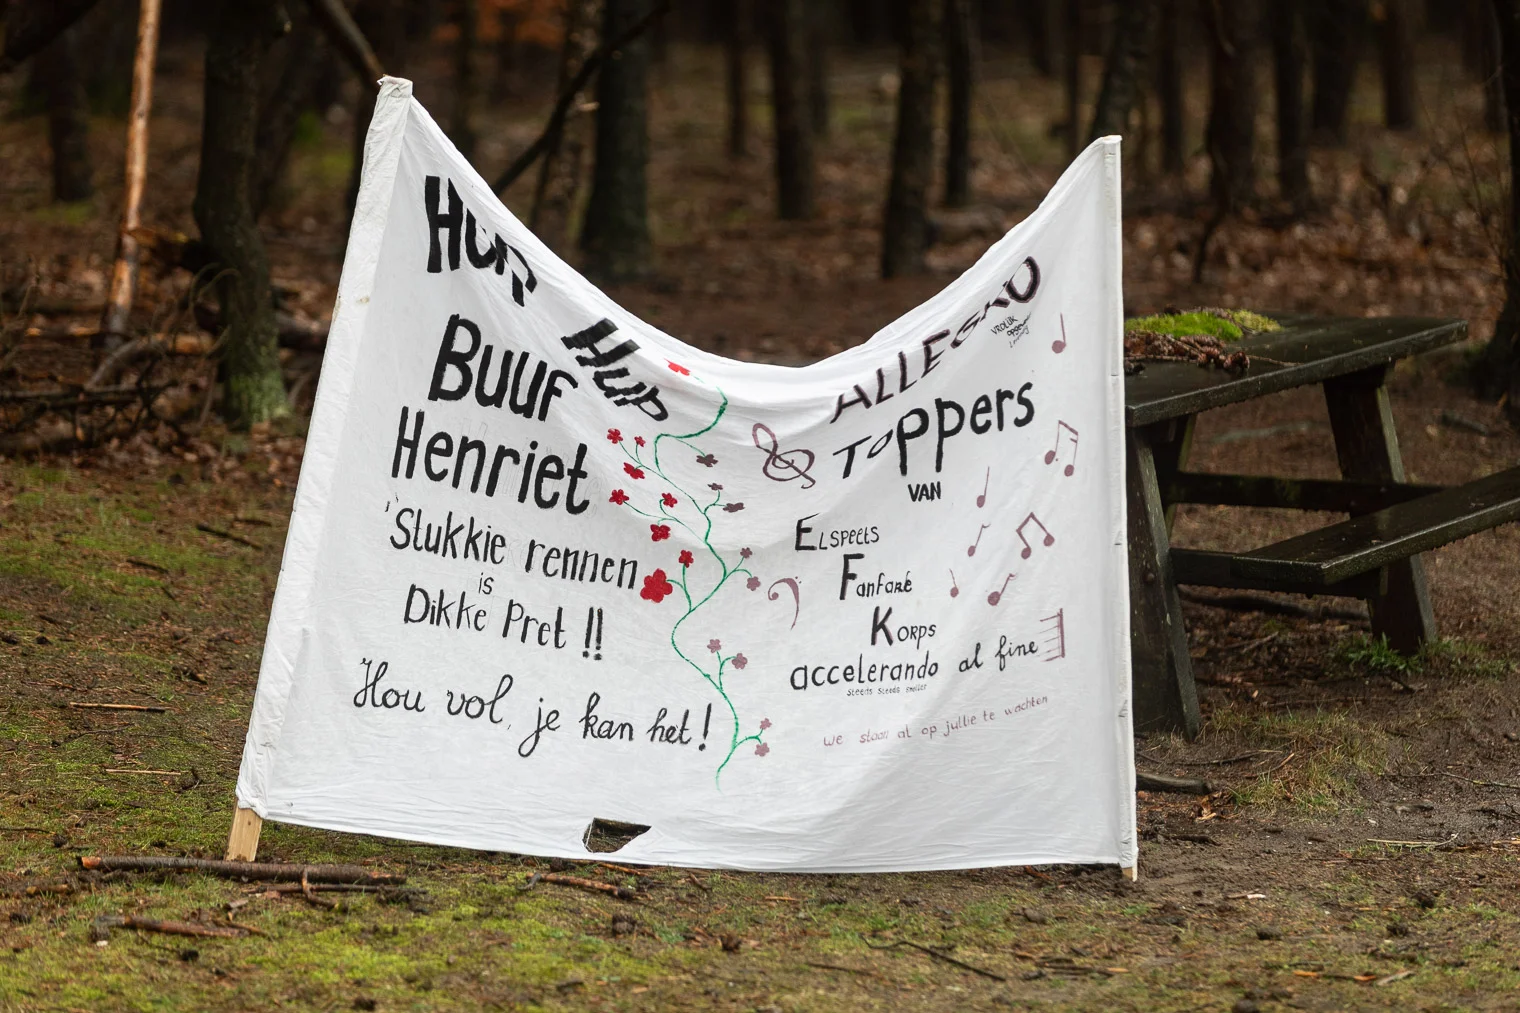 HUP
HUP
BUUF
Henriet
'Stukkie rennen
is
Dikke Pret !!
Hou vol, je kan het!
ALLEGRO
VROLIJK
TOPPers
VAN
ELSPEETS
Fanfare
KORPS
accelerando al fine
steeds steeds sneller
we staan al op jullie te wachten